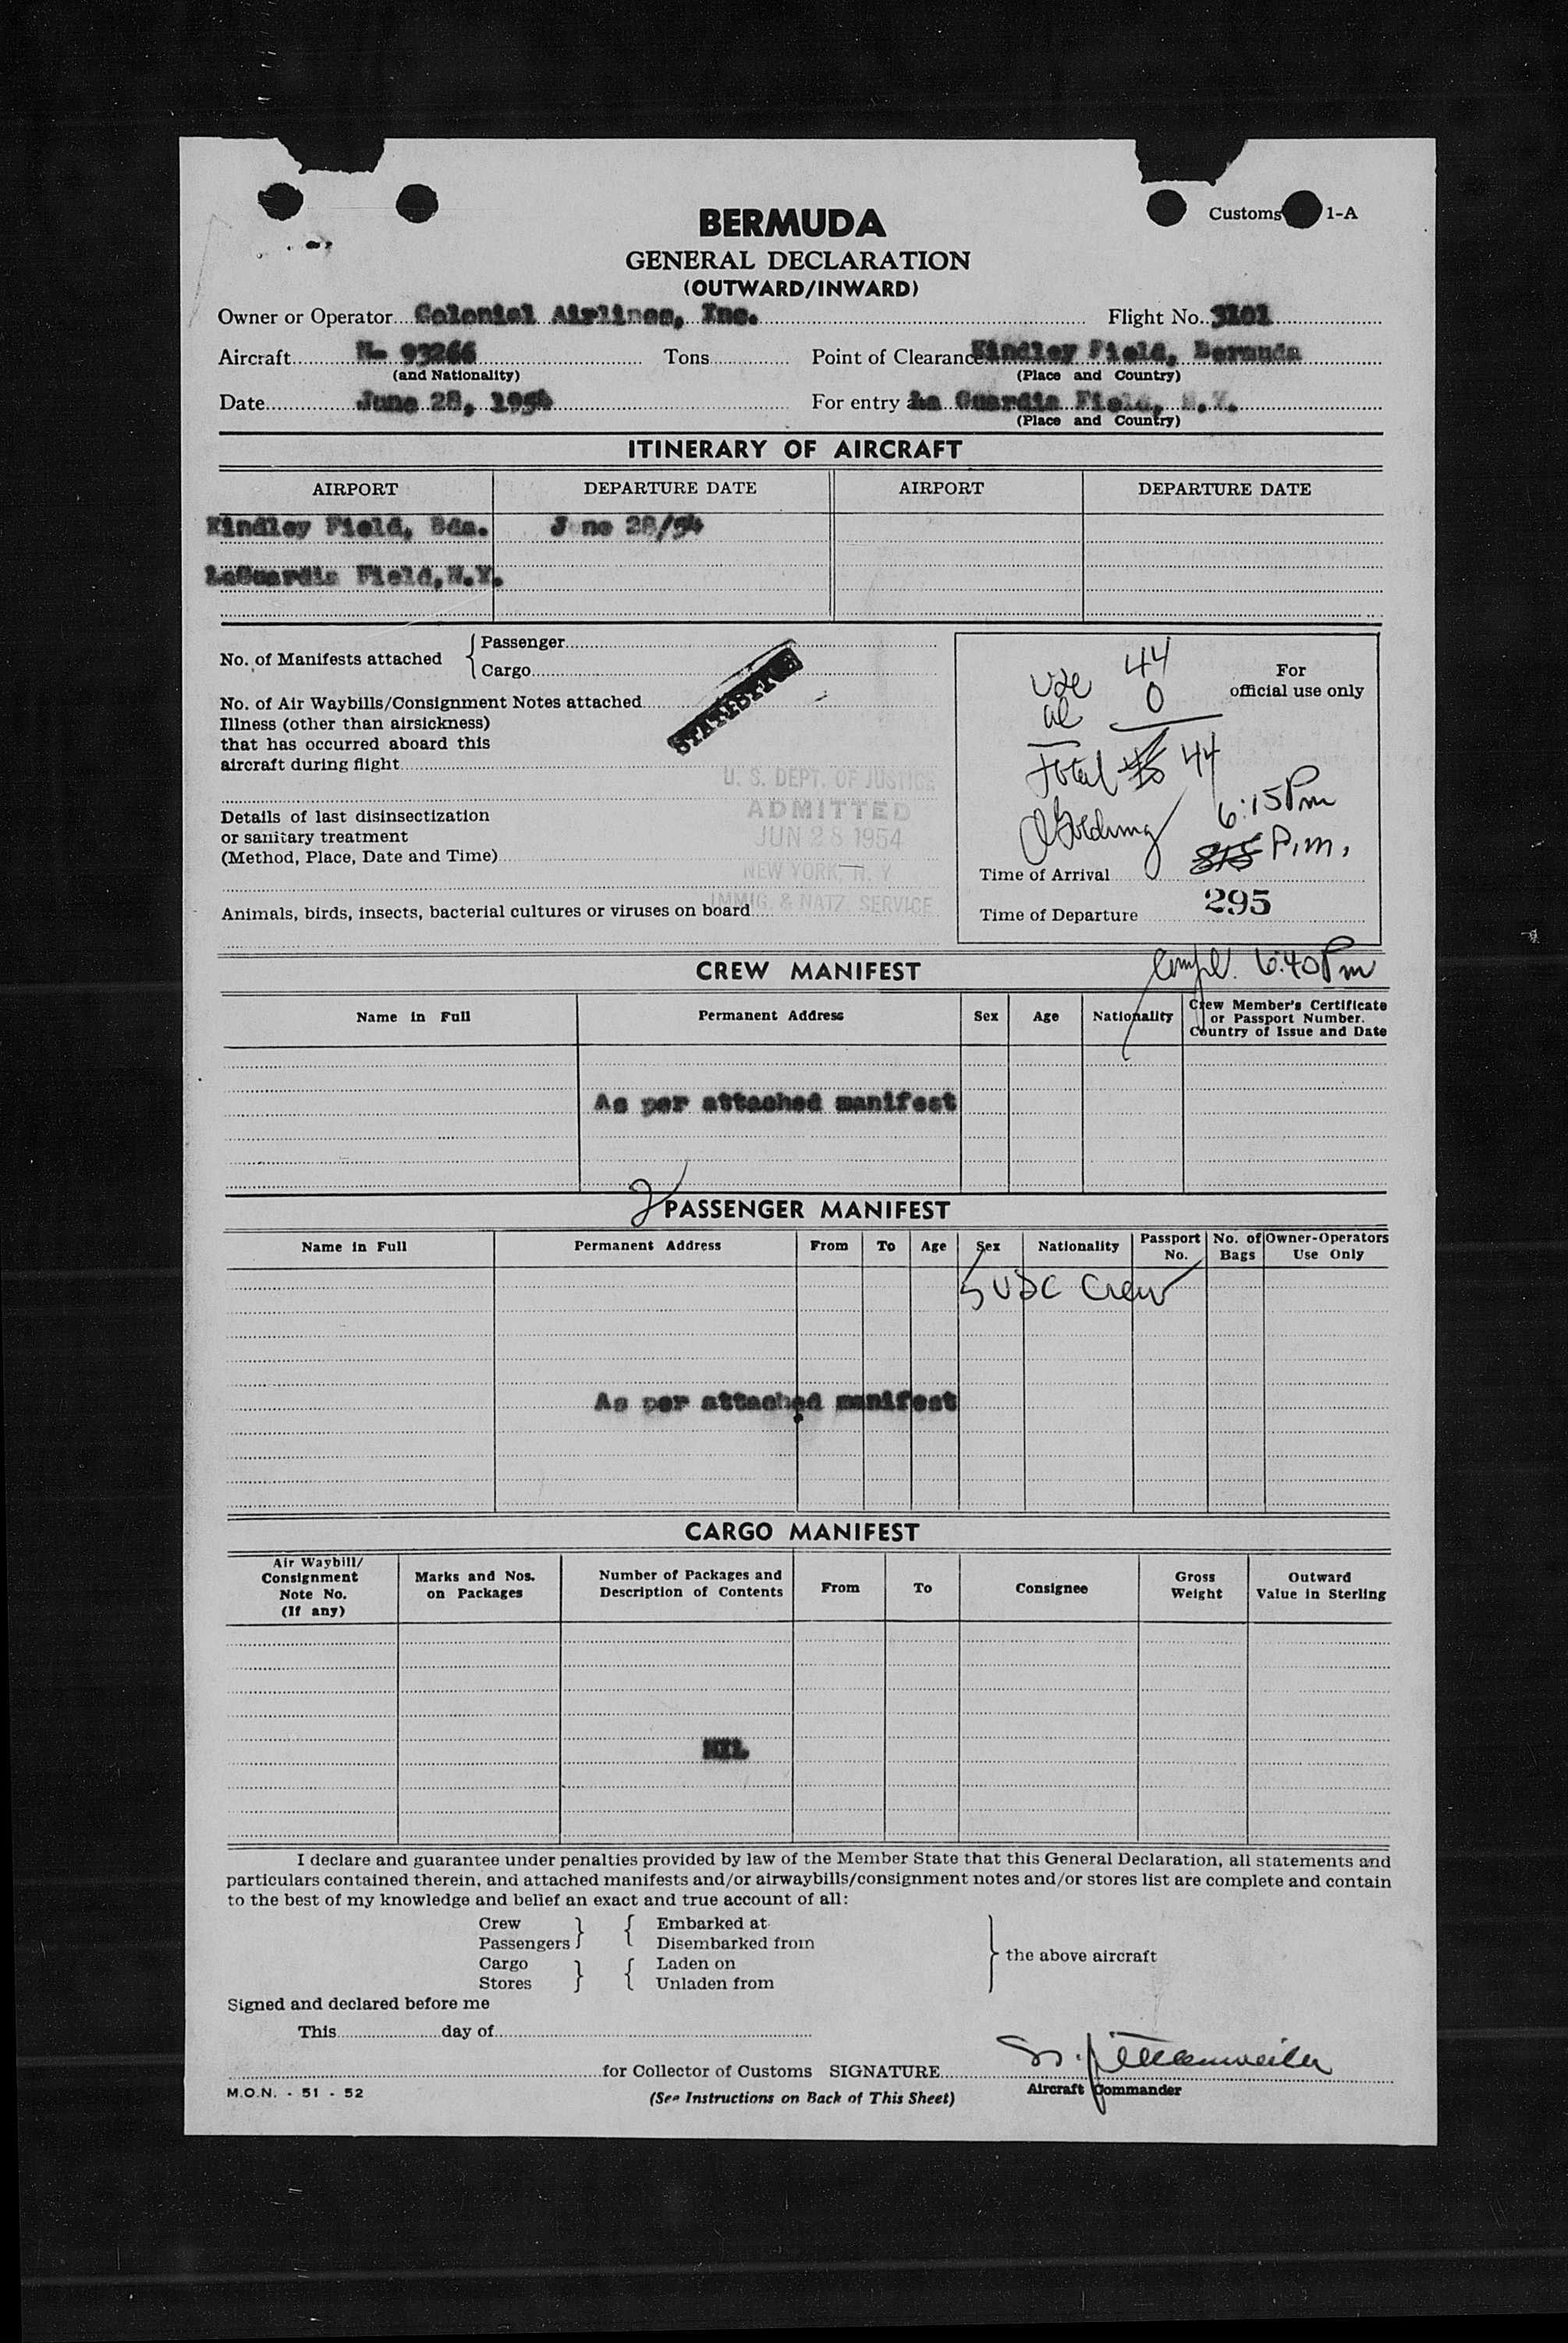 Customs 1-A
BERMUDA
GENERAL DECLARATION
(OUTWARD/INWARD)
Owner or Operator Colonial Airlines, Inc. Flight No. 3101
Aircraft N- 93266 Tons Point of Clearance Kindley Field, Bermuda
(and Nationality) (Place and Country)
Date June 28, 1954 For entry La Guardia Field, N.Y.
(Place and Country)
ITINERARY OF AIRCRAFT
AIRPORT DEPARTURE DATE AIRPORT DEPARTURE DATE
Kindley Field, Bda. June 28/54
LaGuardia Field, N.Y.
No. of Manifests attached { Passenger
Cargo
No. of Air Waybills/Consignment Notes attached
Illness (other than airsickness)
that has occurred aboard this
aircraft during flight
Details of last disinsectization
or sanitary treatment
(Method, Place, Date and Time)
Animals, birds, insects, bacterial cultures or viruses on board
STATISTICS
U. S. DEPT. OF JUSTICE
ADMITTED
JUN 28 1954
NEW YORK, N. Y.
IMMIG. & NATZ. SERVICE
For
official use only
44
0
Total 44
6:15 Pm
P.m.
Time of Arrival
Time of Departure 295
Compl. 6:40 Pm
CREW MANIFEST
Name in Full Permanent Address Sex Age Nationality Crew Member's Certificate
or Passport Number.
Country of Issue and Date
As per attached manifest
2
PASSENGER MANIFEST
Name in Full Permanent Address From To Age Sex Nationality Passport No. No. of Bags Owner-Operators Use Only
5 USC Crew
As per attached manifest
CARGO MANIFEST
Air Waybill/ Consignment Note No. (If any) Marks and Nos. on Packages Number of Packages and Description of Contents From To Consignee Gross Weight Outward Value in Sterling
NIL
I declare and guarantee under penalties provided by law of the Member State that this General Declaration, all statements and
particulars contained therein, and attached manifests and/or airwaybills/consignment notes and/or stores list are complete and contain
to the best of my knowledge and belief an exact and true account of all:
Crew } { Embarked at
Passengers Disembarked from
Cargo } { Laden on
Stores Unladen from
} the above aircraft
Signed and declared before me
This day of
for Collector of Customs SIGNATURE
Aircraft Commander
M.O.N. - 51 - 52
(See Instructions on Back of This Sheet)